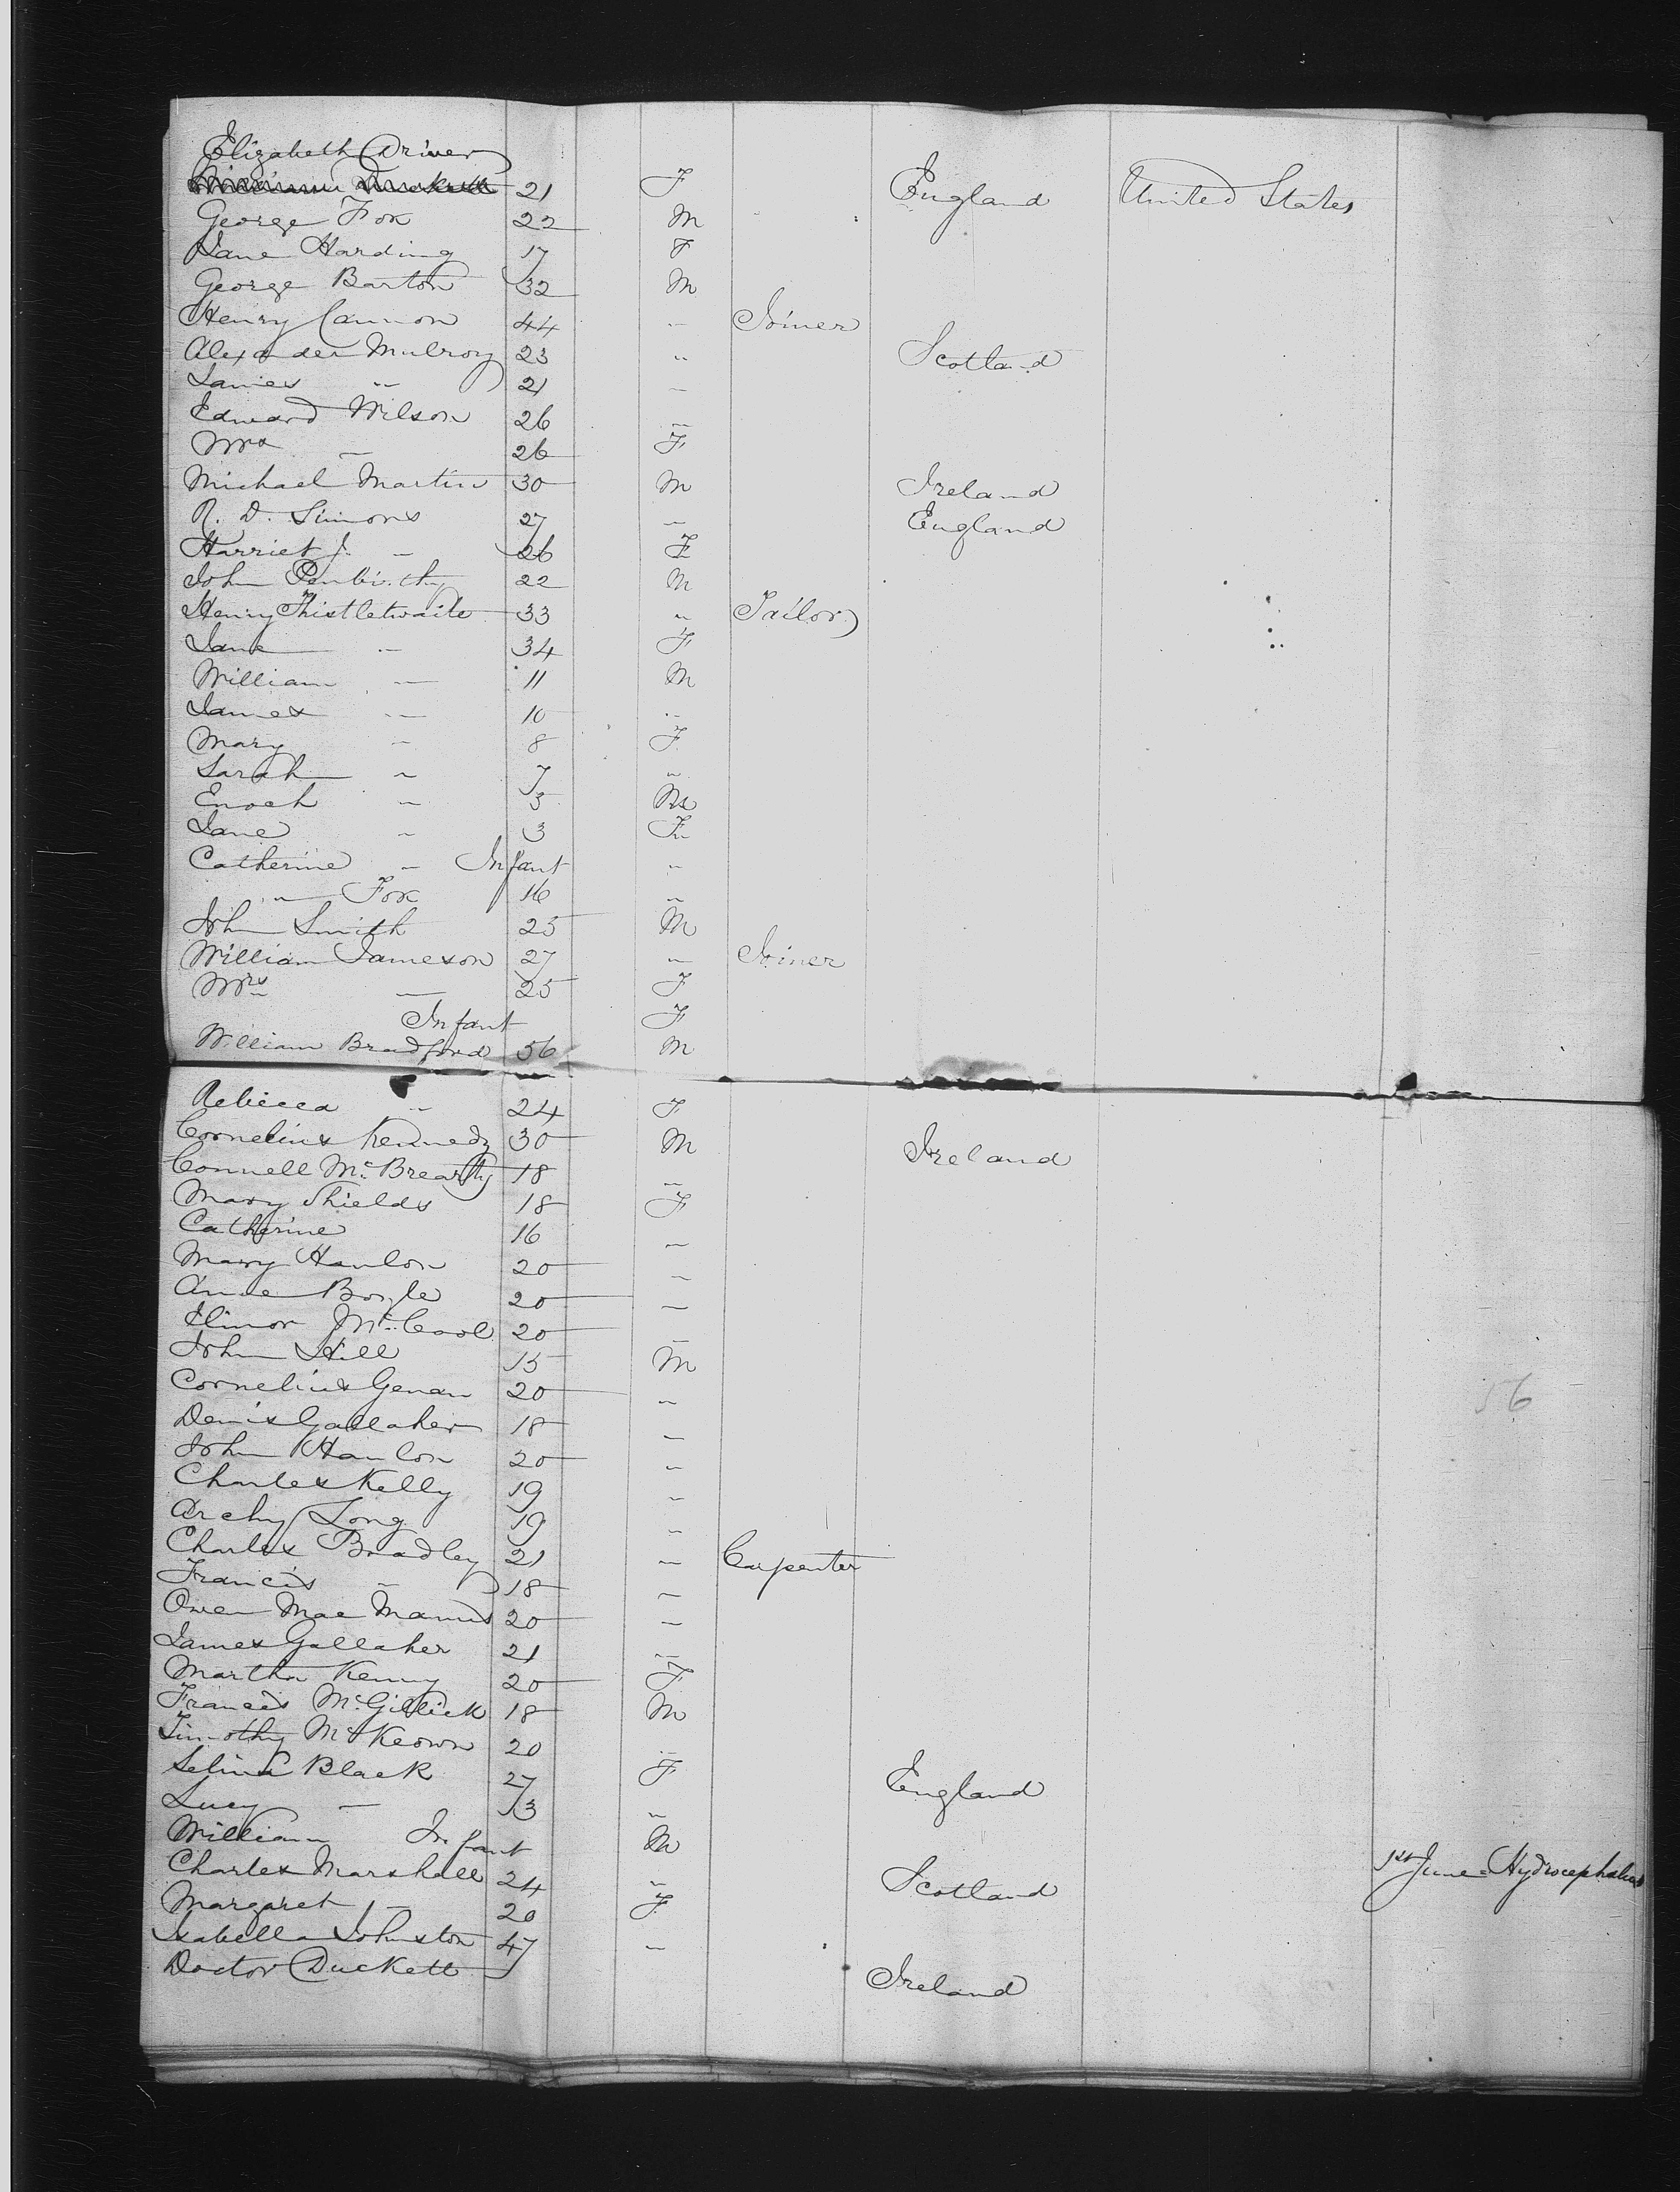 Elizabeth Driver
21 F England United States
George Fox 22 M
Jane Harding 17 F
George Barton 32 M
Henry Cannon 44 " Joiner
Alexander Mulroy 23 " Scotland
James " 21 "
Edward Wilson 26 "
Mrs " 26 F
Michael Martin 30 M Ireland
R. D. Simons 27 " England
Harriet J. " 26 F
John 22 M
Henry Thistletwaite 33 " Tailor
Jane " 34 F
William " 11 M
James " 10 "
Mary " 8 F
Sarah " 7 "
Enoch " 5 M
Jane " 3 F
Catherine " Infant "
" Fox 16 "
John Smith 25 M
William Jameson 27 " Joiner
Mrs " 25 F
Infant F
William Bradford 56 M
Rebecca " 24 F
Cornelius Kennedy 30 M Ireland
Connell McBrearty 18 "
Mary Shields 18 F
Catherine 16 "
Mary Hanlon 20 "
Anne Boyle 20 "
Elinor McCool 20 "
John Hill 15 M
Cornelius Genan 20 "
56
Denis Gallaher 18 "
John Hanlon 20 "
Charles Kelly 19 "
Archy Long 19 "
Charles Bradley 21 " Carpenter
Francis " 18 "
Owen Mac Manus 20 "
James Gallaher 21 "
Martha Kenny 20 F
Francis McGillick 18 M
Timothy McKeown 20 "
Selina Black 27 F England
Lucy " 3 "
William Infant M 1st June = Hydrocephalus
Charles Marshall 24 " Scotland
Margaret " 20 F
Isabella Johnston 47 "
Doctor Duckett Ireland